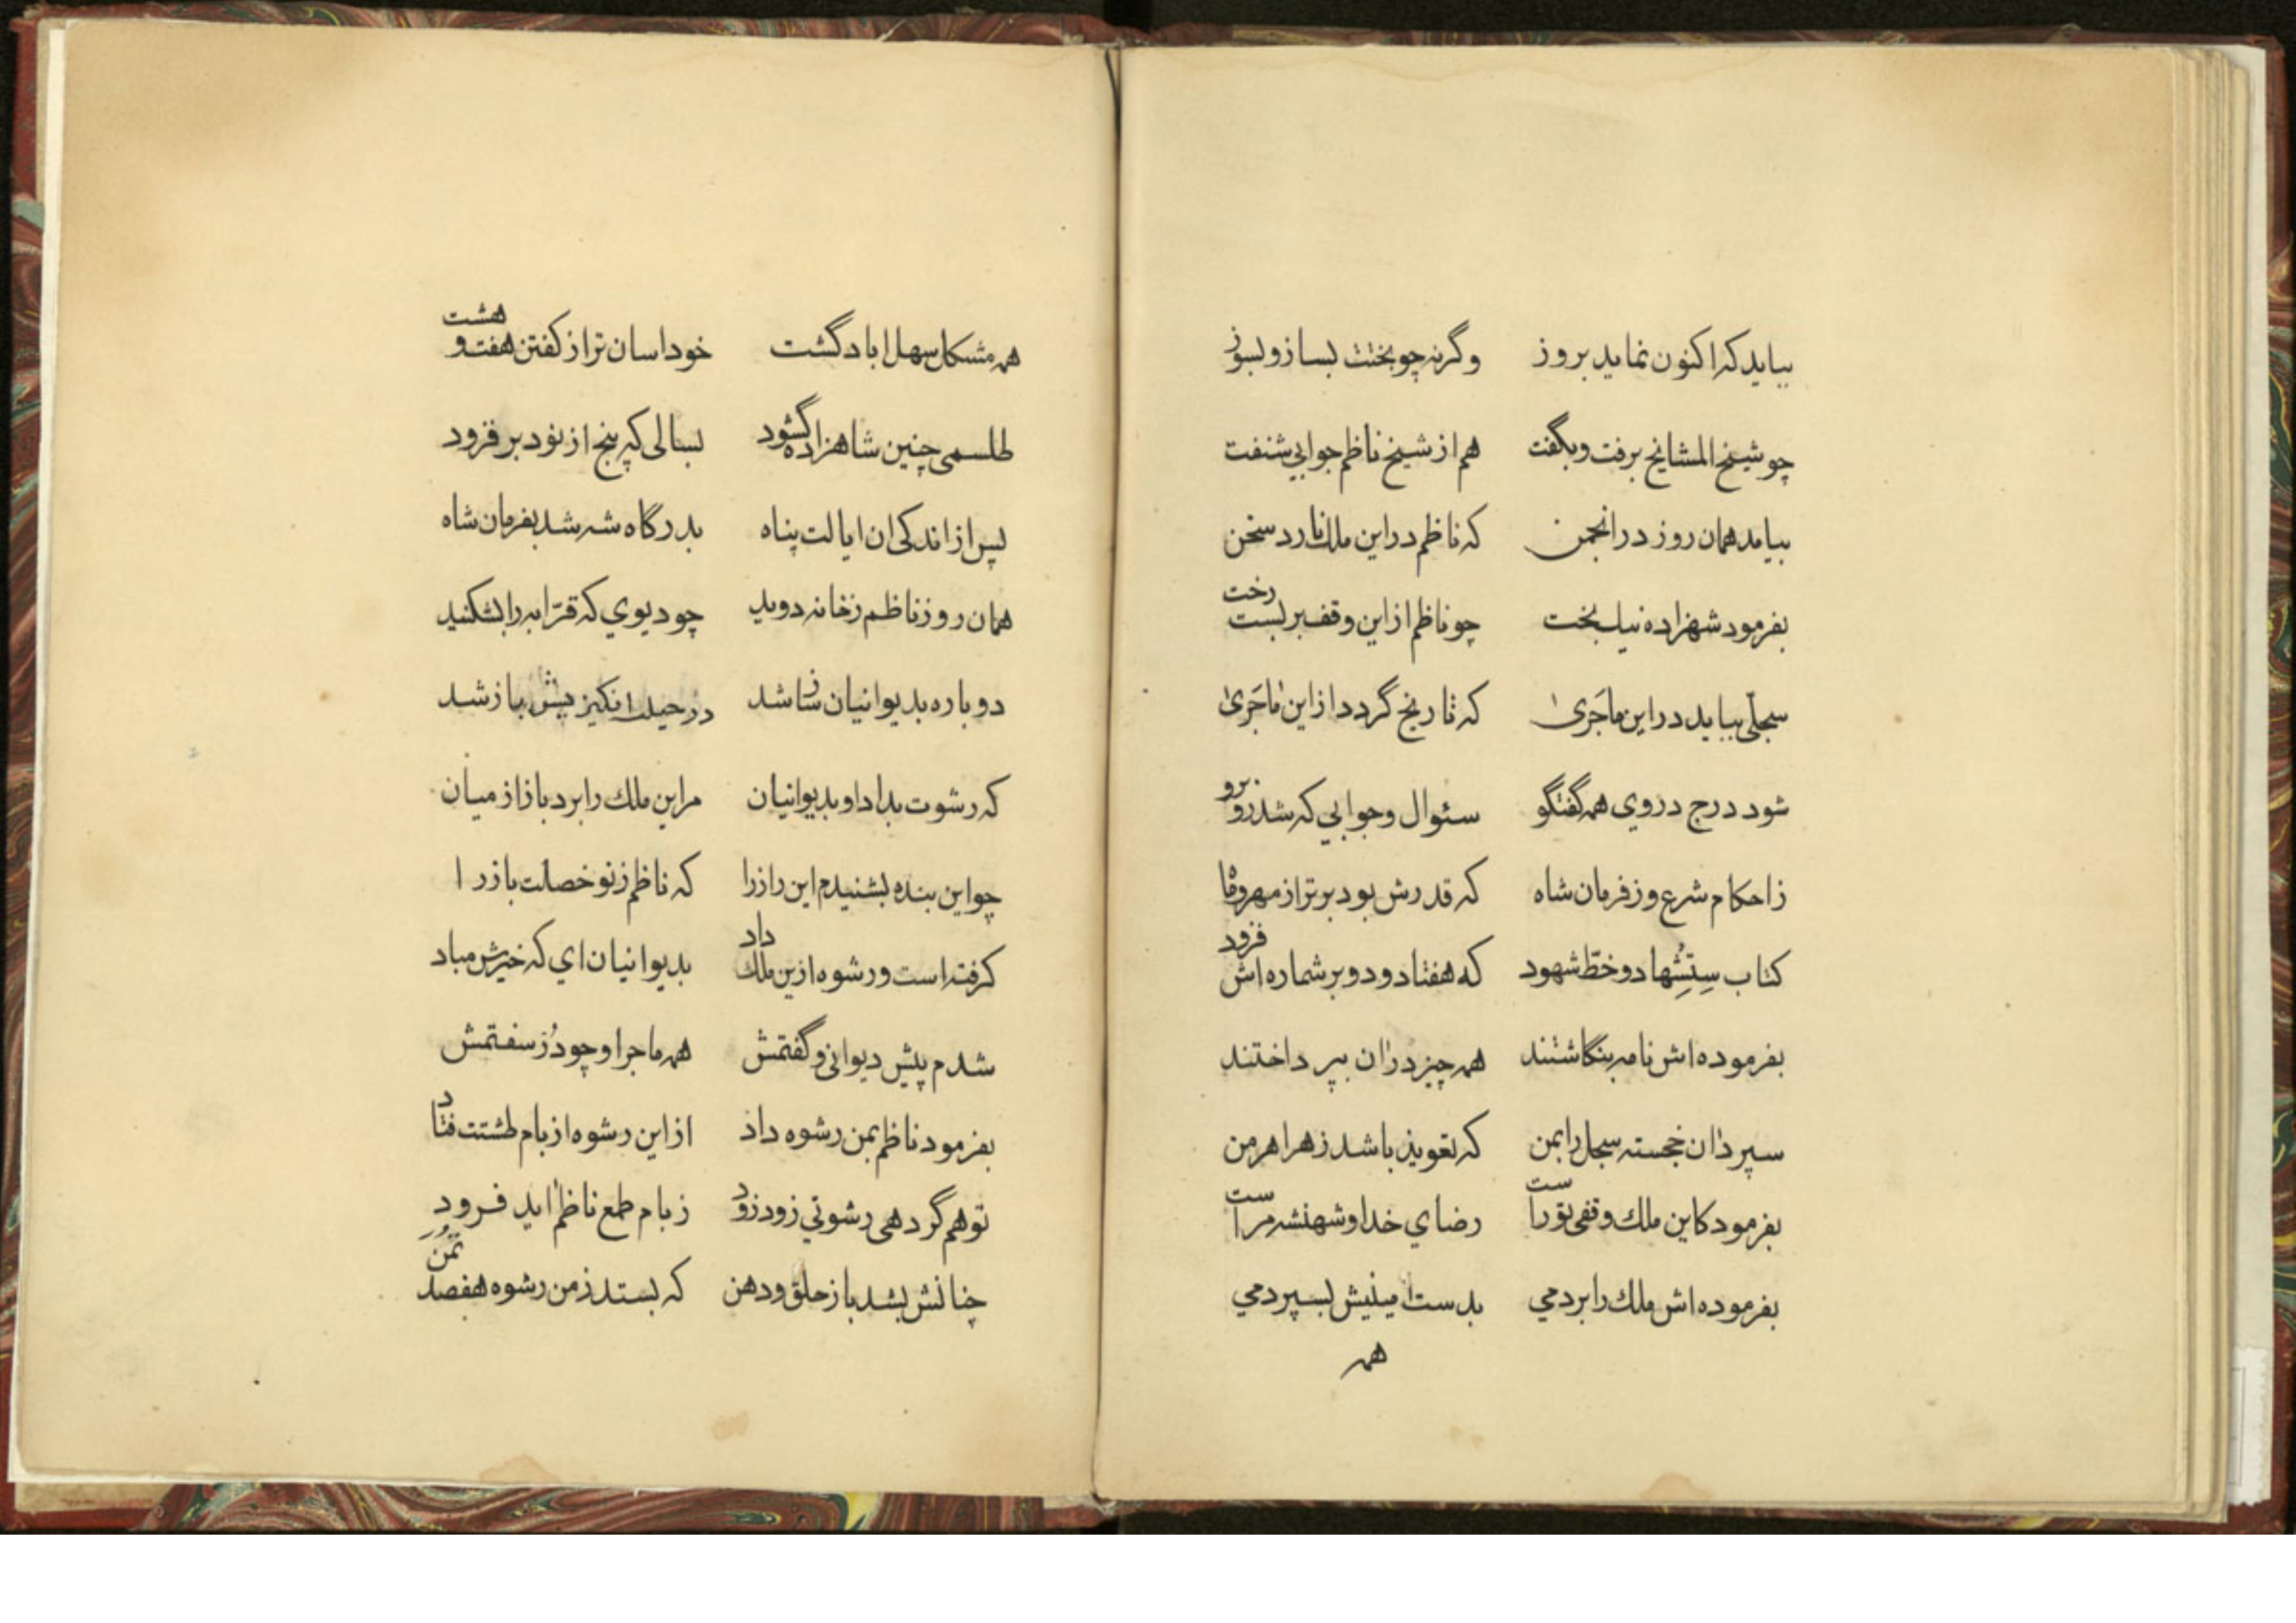 بیاید که اکنون نماید بروز وگرنه چو بختت بساز و بسوز
چو شیخ المشایخ برفت و بگفت هم از شیخ ناظم جوابی شنفت
بیامد همان روز در انجمن که ناظم در این ملک نارد سخن
بفرمود شهزاده نیکبخت چو ناظم از این وقف بربست رخت
سجلّی بباید در این ماجَریٰ که تاریخ گردد از این ماجَریٰ
شود درج در وی همه گفتگو سئوال و جوابی که شد روبرو
ز احکام شرع و ز فرمان شاه که قدرش بود برتر از مهر و ماه
کتاب سِتِشُها دو خطّ شهود که هفتاد و دو بر شماره اش فزود
بفرموده اش نامه بنگاشتند همه چیز در ان بپرداختند
سپرد ان خجسته سجل را بمن که تعویذ باشد ز هر اهرمن
بفرمود کاین ملک وقفی تو راست رضای خدا و شهنشه مراست
بفرموده اش ملک را بردمی بدست امینیش بسپردمی
همه
همه مشکل سهل اباد گشت خود اسان تر از گفتن هفت و هشت
طلسمی چنین شاهزاده گشود بسالی که پنج از نود بر فزود
پس از اندکی ان ایالت پناه بدرگاه شه شد بفرمان شاه
همان روز ناظم ز خانه دوید چو دیوی که قرّابه را بشکنید
دوباره بدیوانیان ساز شد در حیلت انگیزیش باز شد
که رشوت بداد او بدیوانیان مر این ملک را برد باز از میان
چو این بنده بشنیدم این راز را که ناظم ز نو خصلت باز را
گرفته است و رشوه ازین ملک داد بدیوانیان ای که خیرش مباد
شدم پیش دیوانی و گفتمش همه ماجرا و چو دُر سفتمش
بفرمود ناظم بمن رشوه داد از این رشوه از بام طشتت فتاد
تو هم گر دهی رشوتی زود زود ز بام طمع ناظم اید فرود
چنانش بشد باز حلق و دهن که بستد ز من رشوه هفصد تُمَن